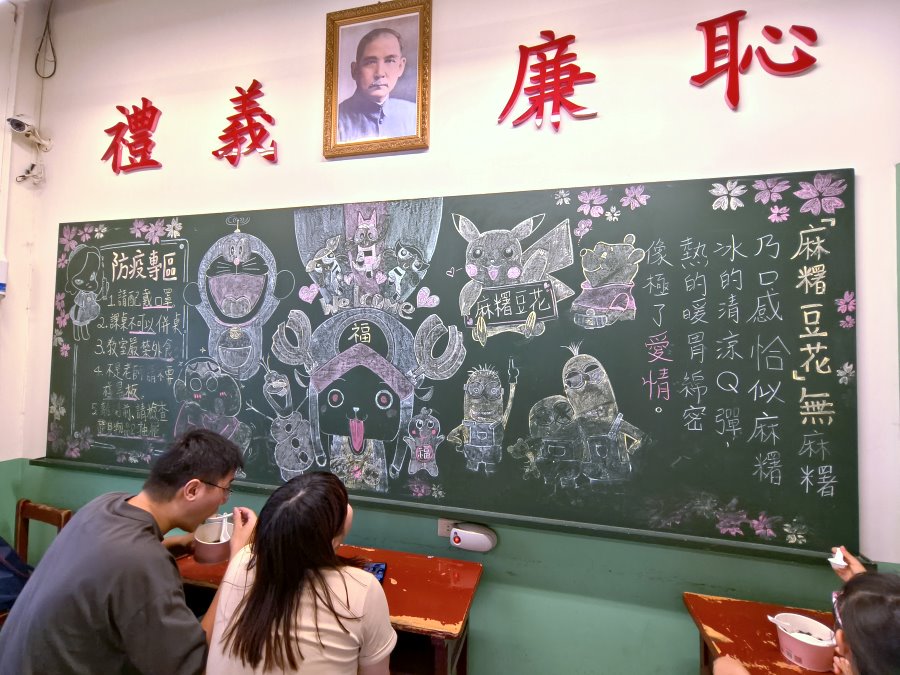 禮義廉恥
防疫專區
1. 請配戴口罩
2. 課桌不可以併桌!
3. 教室嚴禁外食
4. 不是老師請不要
擦黑板
Welcome
福
麻糬豆花
福
「麻糬豆花」無麻糬
乃口感恰似麻糬
冰的清涼Q彈、
熱的暖胃綿密
像極了愛情。